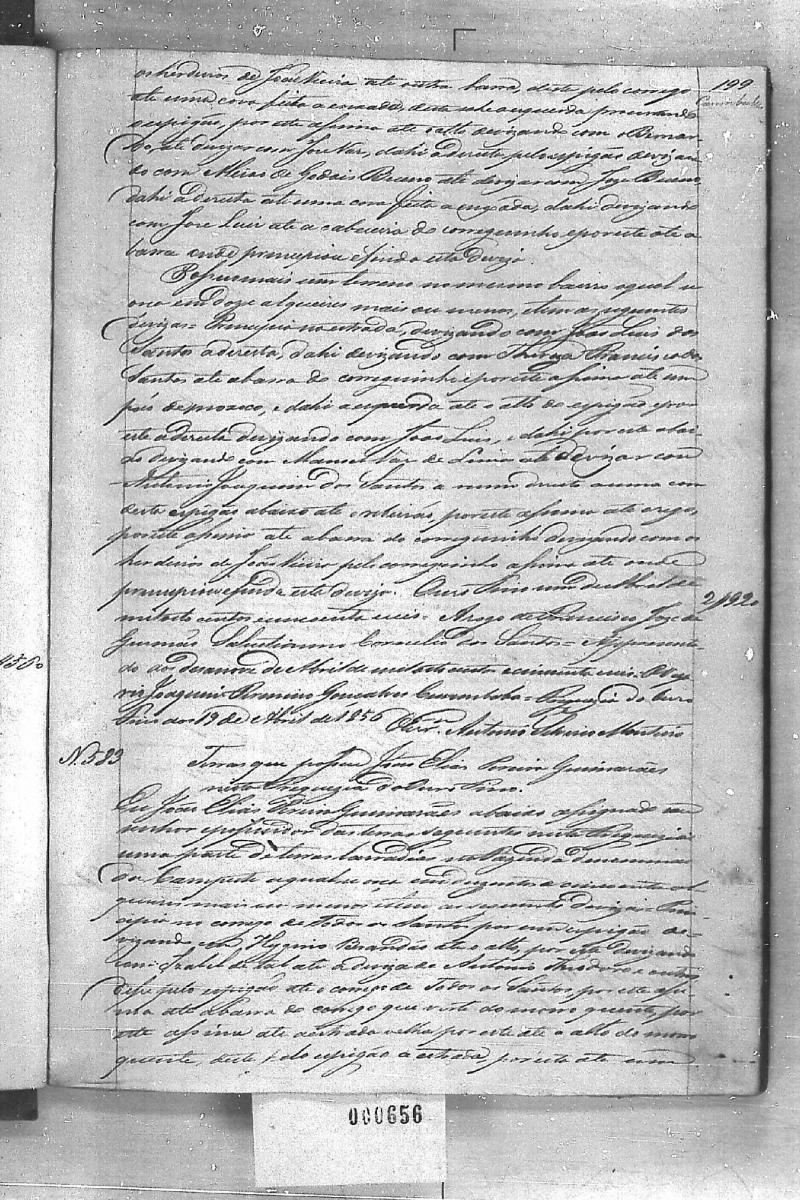 199
os herdeiros de João Vieira até outra barra, deste pelo corrego
até uma cova feita a enxada, deste sobe a esquerda procurando
o espigão, por este assima até o alto devizando com o Bernar-
do, até devizar com José Vaz, dahi a direita pelo espigão devizan-
do com Messias de Godois Bueno até devizar com Joze Bueno,
dahi a direita até uma cova feita a enxada, dahi devizando
com Jose Luis até a cabeceira do correguinho e por este até a
barra onde principiou e finda esta divizão.
Possue mais um terreno no mesmo bairro o qual se
orça em doze alqueires mais ou menos, e tem as seguintes
devizas = Principia na estrada, devizando com João Luis dos
Santos a direita, dahi devizando com Thereza Francisca dos
Santos até a barra do correguinho e por este assima até um
, e dahi a esquerda até o alto do espigão e por
este a direita devizando com João Luis, e dahi por este abai-
xo devizando com Manoel Vaz de Lima até devizar com
Antonio Joaquim dos Santos a rumo direito a uma cova
desta espigão abaixo até , por este assima até o rego,
por este assima até a barra do correguinho devizando com os
herdeiros de João Vieira pelo correguinho assima até onde
principiou e finda esta divizão. Ouro Fino um de Abril de
mil oito centos e cincoenta e seis = Arogo de Francisco Joze de
Gusmão Salustianno Cornelio dos Santos = Appresenta-
do aos dezanove de Abril de mil oito centos e cincoenta e seis = O Viga-
rio Joaquim Firmino Gonçalves Curimbaba = Freguezia do Ouro
Fino aos 19 de Abril de 1856
2/920
N. 583
Terras que possue João Elias Pereira Guimarães
nesta Freguezia do Ouro Fino.
Eu João Elias Pereira Guimarães abaixo assignado sou
senhor e possuidor das terras seguintes nesta Freguezia
uma parte de terras lavradias na Fazenda denomina-
da Campestre a qual se orça em duzentos e cincoenta al-
queires mais ou menos e tem as seguintes devizas = Prin-
cipia no corrego de Todos os Santos por um espigão de-
vizando com Hygino Brandão até o alto, por este devizando
com Izabel de tal até a deviza de Antonio Theodoro e outros
desse pelo espigão até o corrego de Todos os Santos, por este assi-
ma até a barra do corrego que verte do morro quente, por
este assima até a estrada velha por este até o alto do morro
quente, deste espigão a estrada, por esta até uma
000656